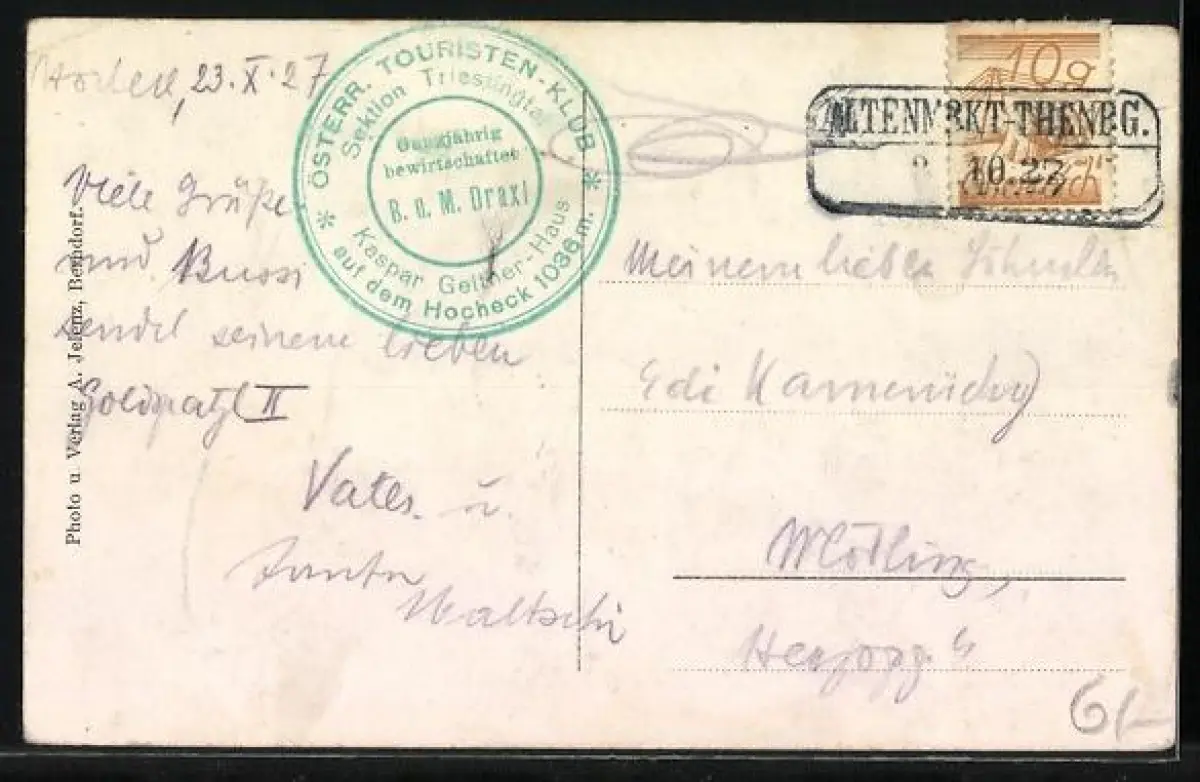 Hocheck, 23.X.27
Viele Grüße
und Bussi
sendet seinem lieben
Goldpatzl II
Vater u.
Tante
Waltschi
Photo u. Verlag A. Jelenz, Berndorf.
ÖSTERR. TOURISTEN-KLUB
Sektion Triestingtal
Ganzjährig
bewirtschaftet
B. u. M. Draxl
Kaspar Geitner-Haus
auf dem Hocheck 1036 m.
10g
ALTENMRKT-THENBG.
10.27
Meinem lieben
Edi
Mödling,
6/-